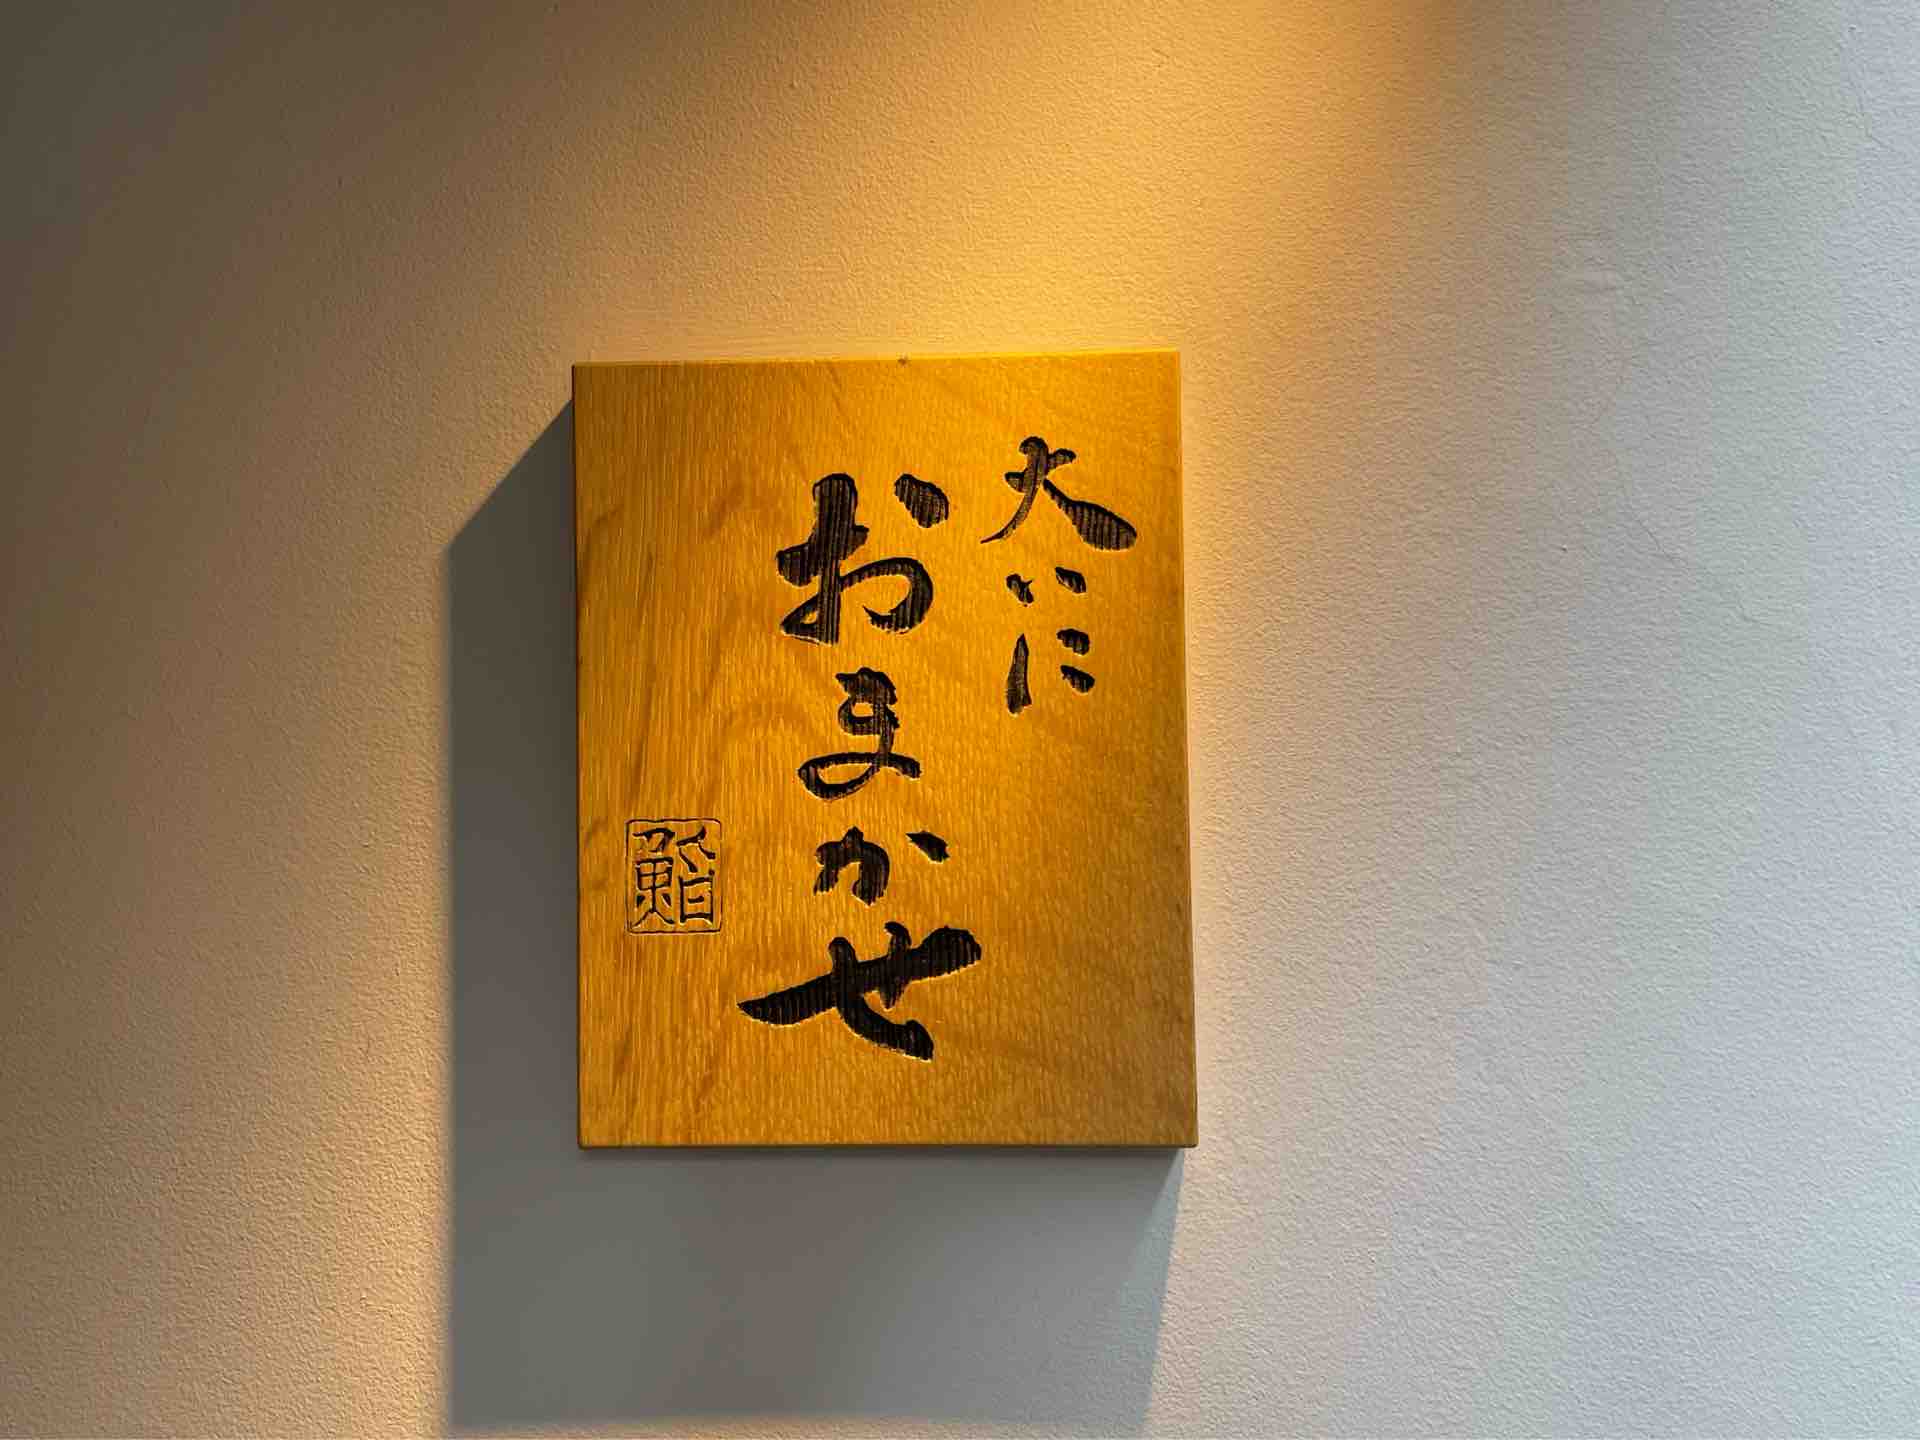 大いに
おまかせ
鮨